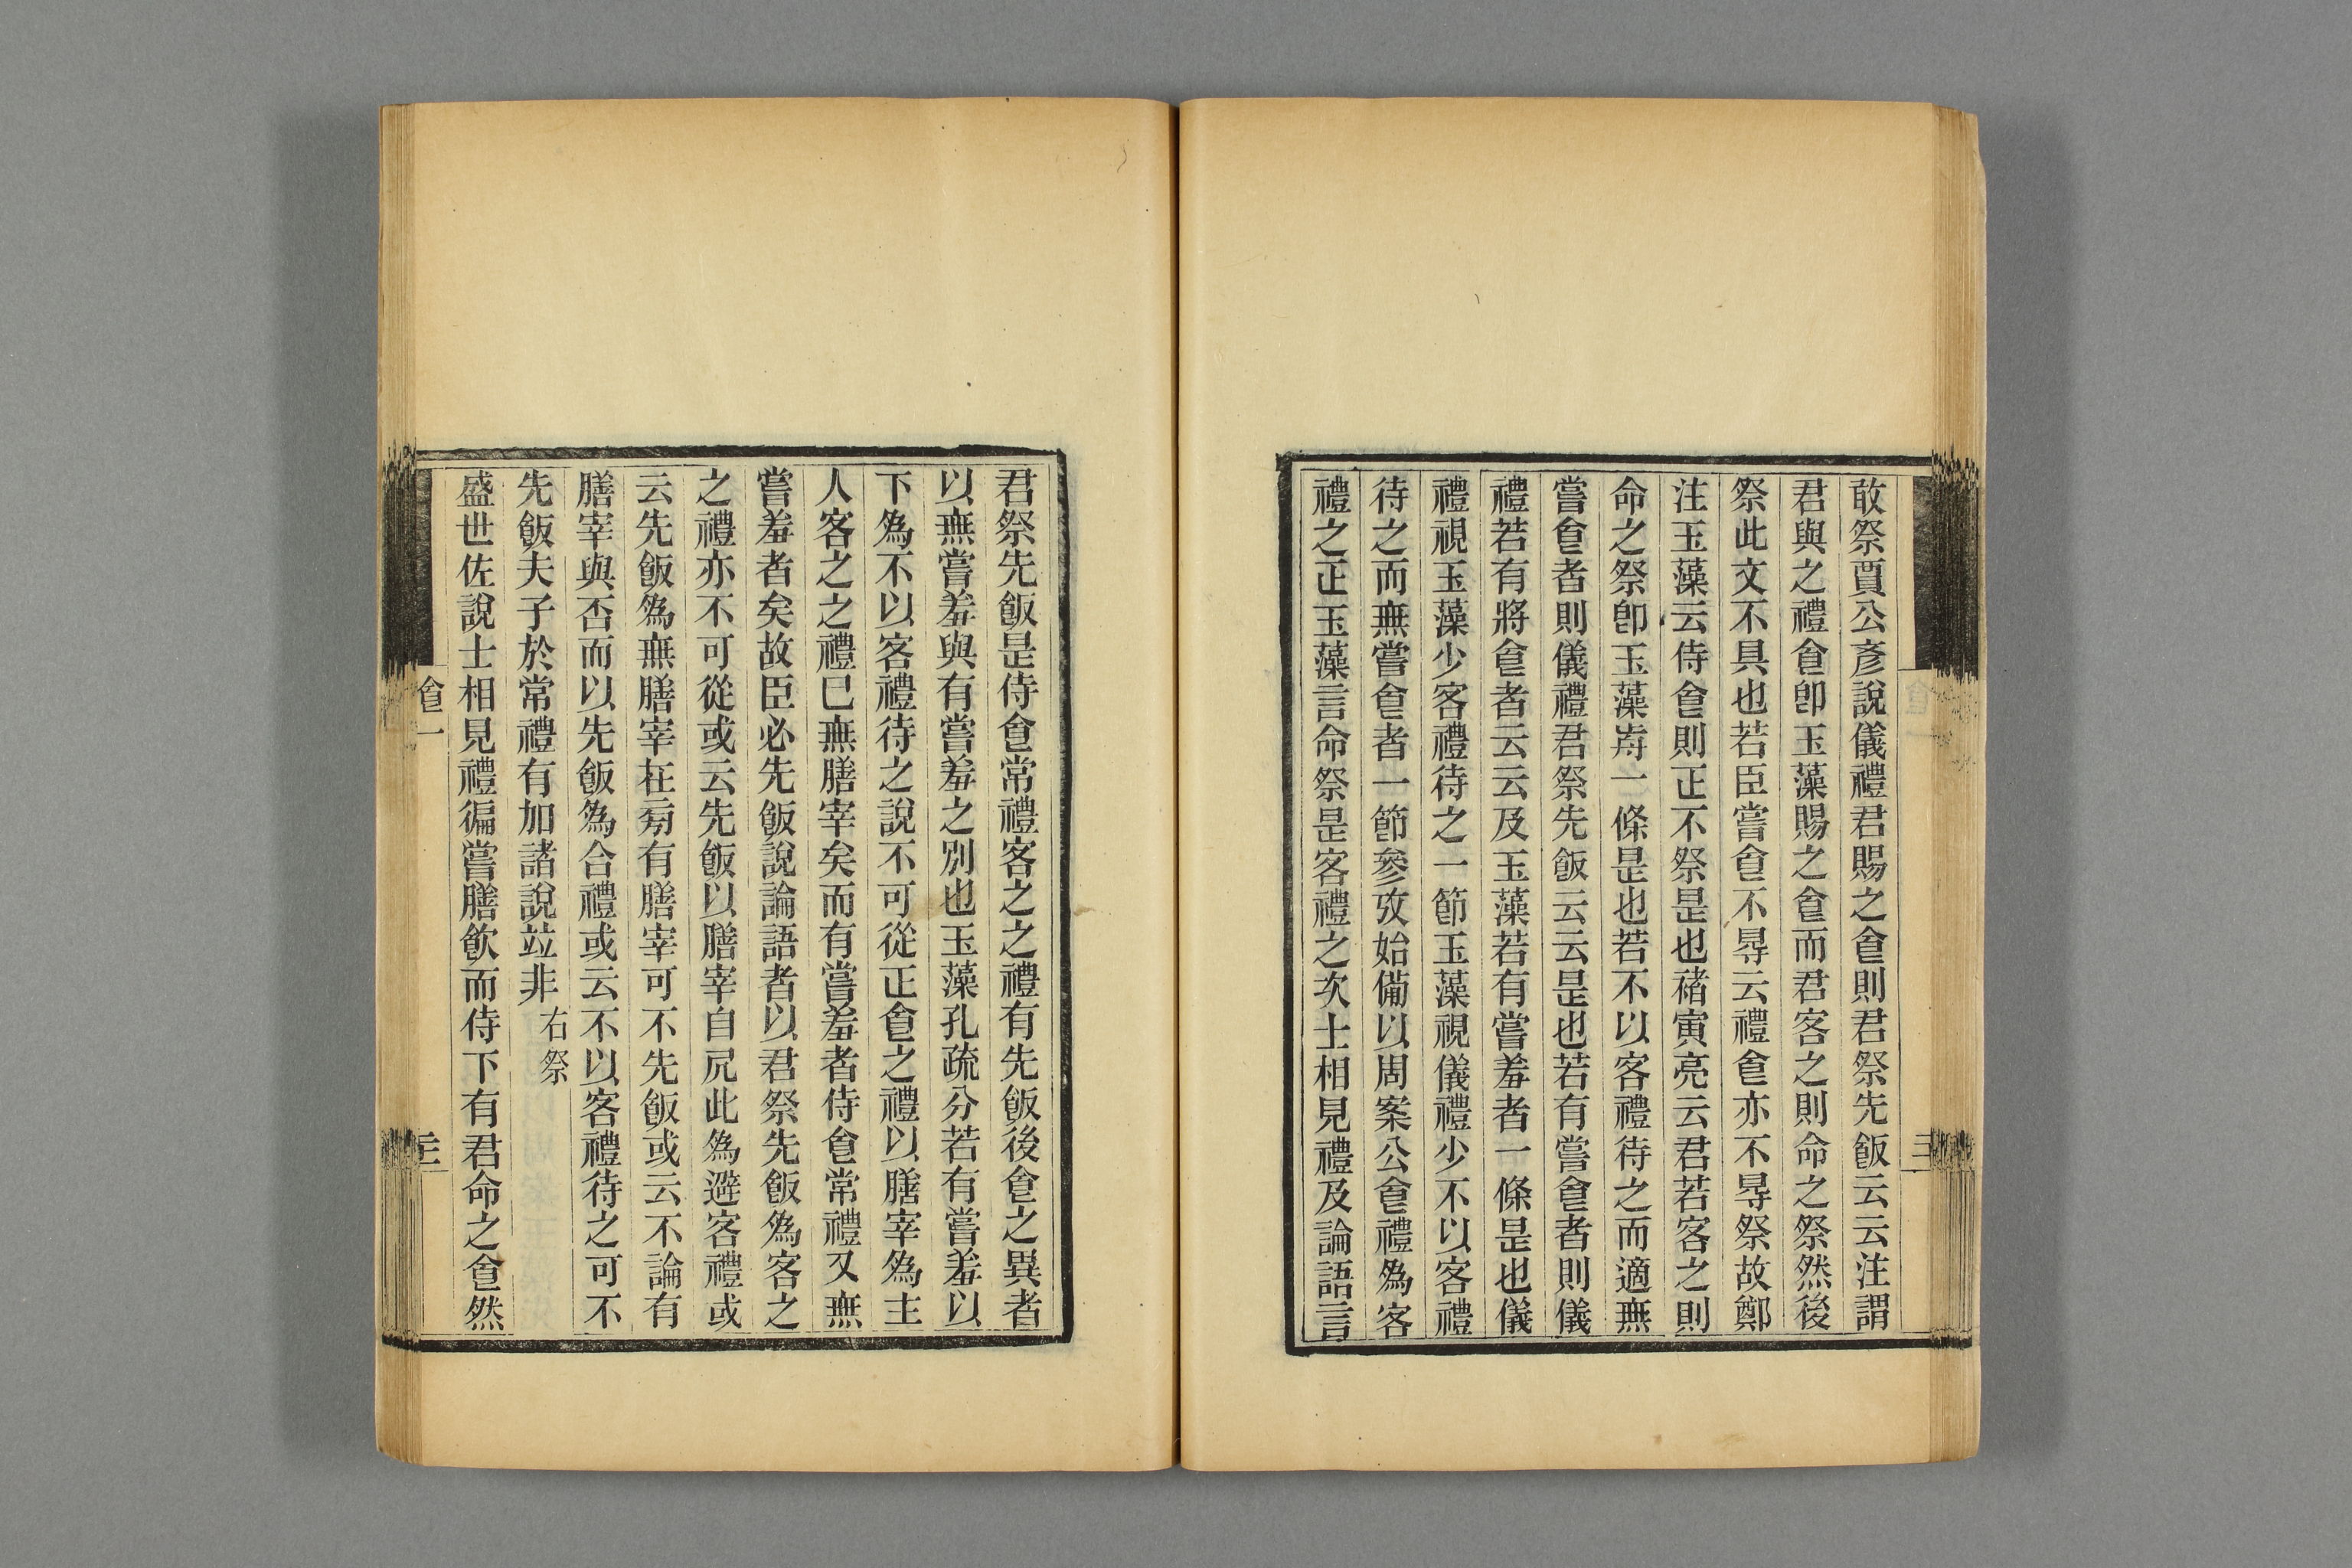 敢祭賈公彥說儀禮君賜之食則君祭先飯云云注謂
君與之禮食卽玉藻賜之食而君客之則命之祭然後
祭此文不具也若臣嘗食不㝵云禮食亦不㝵祭故鄭
注玉藻云侍食則正不祭是也褚寅亮云君若客之則
命之祭卽玉藻歬一條是也若不以客禮待之而適無
嘗食者則儀禮君祭先飯云云是也若有嘗食者則儀
禮若有將食者云云及玉藻若有嘗羞者一條是也儀
禮視玉藻少客禮待之一節玉藻視儀禮少不以客禮
待之而無嘗食者一節參攷始備以周案公食禮爲客
禮之正玉藻言命祭是客禮之次士相見禮及論語言
君祭先飯是侍食常禮客之之禮有先飯後食之異者
以無嘗羞與有嘗羞之別也玉藻孔疏分若有嘗羞以
下爲不以客禮待之說不可從正食之禮以膳宰爲主
人客之之禮已無膳宰矣而有嘗羞者侍食常禮又無
嘗羞者矣故臣必先飯說論語者以君祭先飯爲客之
之禮亦不可從或云先飯以膳宰自凥此爲避客禮或
云先飯爲無膳宰在㫄有膳宰可不先飯或云不論有
膳宰與否而以先飯爲合禮或云不以客禮待之可不
先飯夫子於常禮有加諸說竝非 右祭
盛世佐說士相見禮徧嘗膳飮而侍下有君命之食然
食一
三